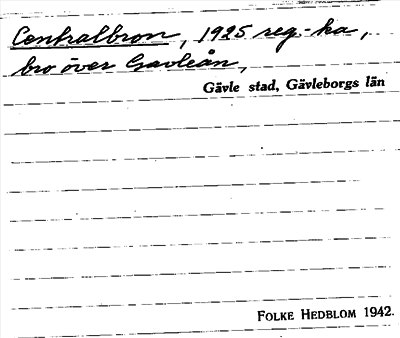 Centralbron, 1925 reg.-ka,
bro över Gavleån,
Gävle stad, Gävleborgs län
FOLKE HEDBLOM 1942.